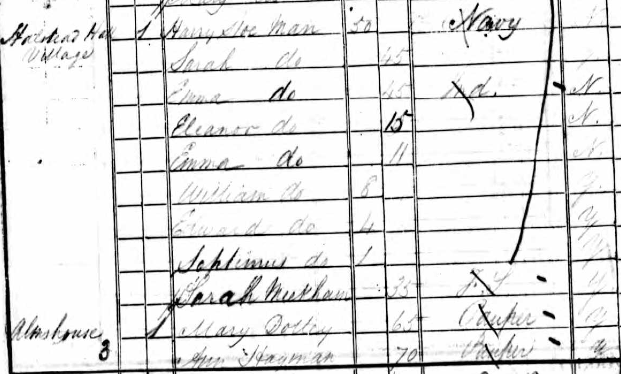 1 Harry Stoe Man 50 Navy N
Village Sarah do 45 Y
Emma do 45 Ind. N.
Eleanor do 15 N.
Emma do 11 N
William do 8 Y
Edward do 4 Y
Septimus do 1 Y
Sarah Markham 35 F. S. Y
Almshouse 1 Mary Dolley 65 Pauper Y
3 Ann Hayman 70 Pauper